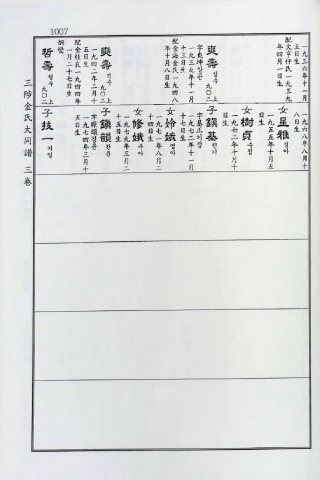 1007
一九三六年十一月
五日生
配文亨任氏一九三九
年四月一日生
奭壽 九〇二上
字贊坤
一九三九年十一月
十三日生
配金海金氏一九四八
年十月八日生
奭壽 九〇二上
一九四二年二月十
五日生
配金桂民一九四四年
一月二十七日生
哲壽 철수 九〇二上
一九六八年八月十
八日生
女星雅 성아
一九五五年十月五
日生
女樹貞 수정
一九七〇年十月十
日生
子鎭基 진기
一九七二年十一月
十七日生
女姈娥 영아
一九七一年八月二
十四日生
女修娥 수아
一九七九年三月二
十五日生
子鎭韻 진운
一九七四年三月十
五日生
子技一 기일
三陟金氏大同譜 三卷